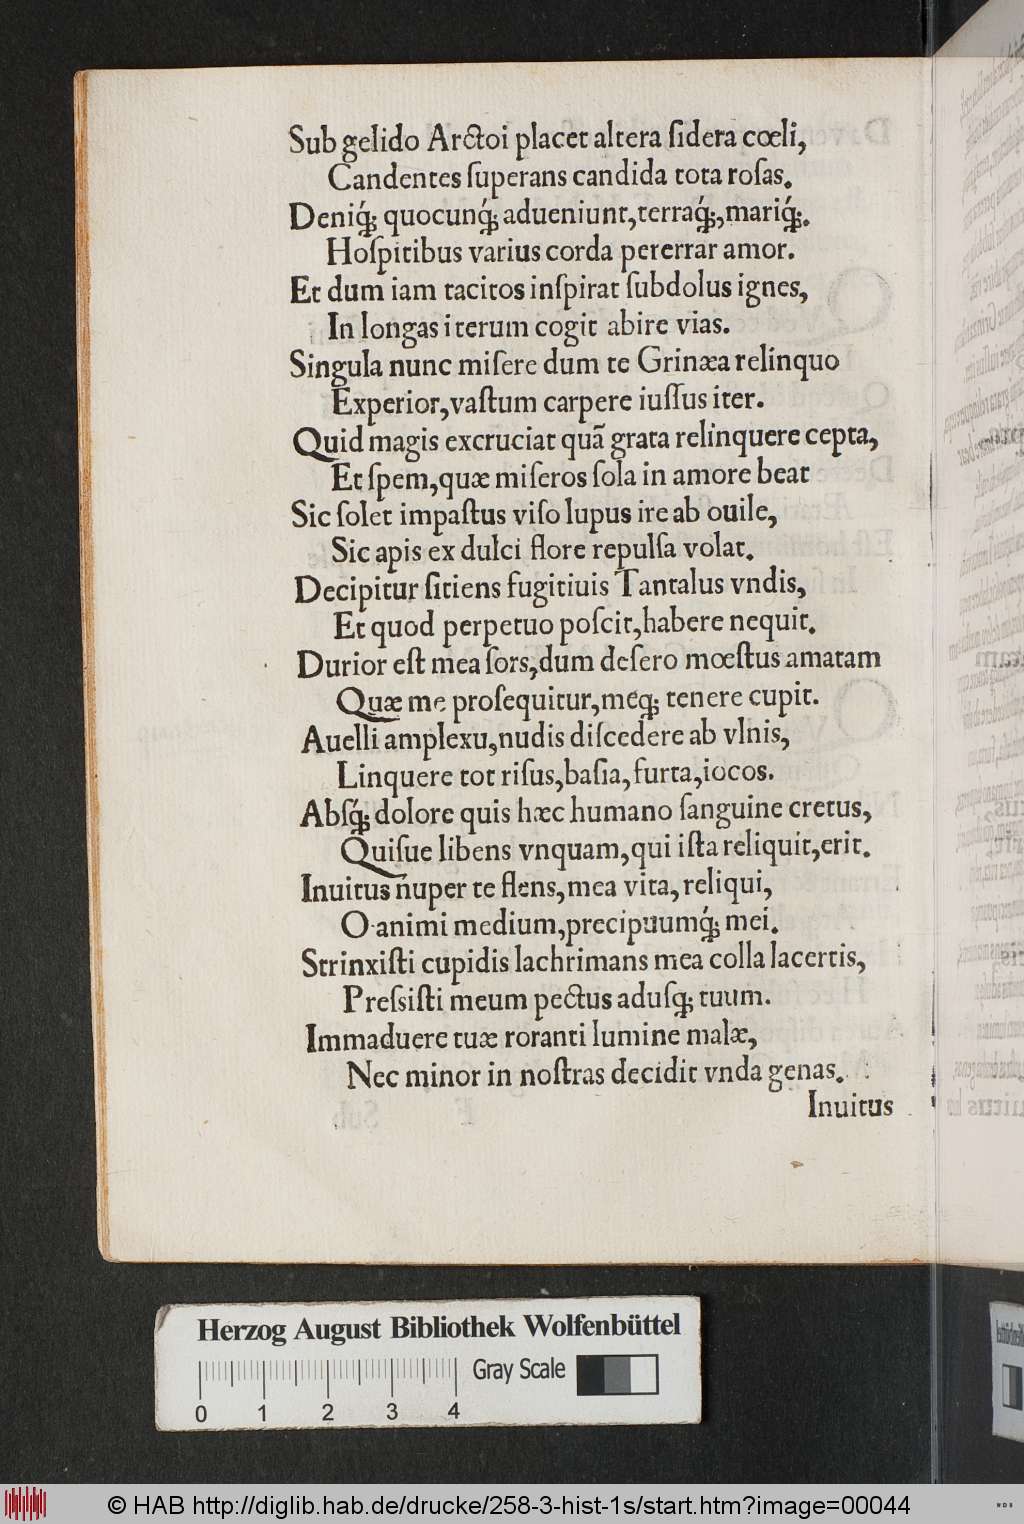 Sub gelido Arctoi placet altera ſidera cœli,
Candentes ſuperans candida tota roſas.
Deniq́; quocunq́; adueniunt, terraq́;, mariq́;.
Hoſpitibus varius corda pererrar amor.
Et dum iam tacitos inſpirat ſubdolus ignes,
In longas iterum cogit abire vias.
Singula nunc miſere dum te Grinæa relinquo
Experior, vaſtum carpere iuſſus iter.
Quid magis excruciat quã grata relinquere cepta,
Et ſpem, quæ miſeros ſola in amore beat
Sic ſolet impaſtus viſo lupus ire ab ouile,
Sic apis ex dulci flore repulſa volat.
Decipitur ſitiens fugitiuis Tantalus vndis,
Et quod perpetuo poſcit, habere nequit.
Durior eſt mea ſors, dum deſero mœſtus amatam
Quæ me proſequitur, meq; tenere cupit.
Auelli amplexu, nudis diſcedere ab vlnis,
Linquere tot riſus, baſia, furta, iocos.
Abſq́; dolore quis hæc humano ſanguine cretus,
Quiſue libens vnquam, qui iſta reliquit, erit.
Inuitus nuper te flens, mea vita, reliqui,
O animi medium, precipuumq́; mei.
Strinxiſti cupidis lachrimans mea colla lacertis,
Preſsiſti meum pectus aduſq; tuum.
Immaduere tuæ roranti lumine malæ,
Nec minor in noſtras decidit vnda genas.
Inuitus
Herzog August Bibliothek Wolfenbüttel
Gray Scale
0 1 2 3 4
© HAB http://diglib.hab.de/drucke/258-3-hist-1s/start.htm?image=00044